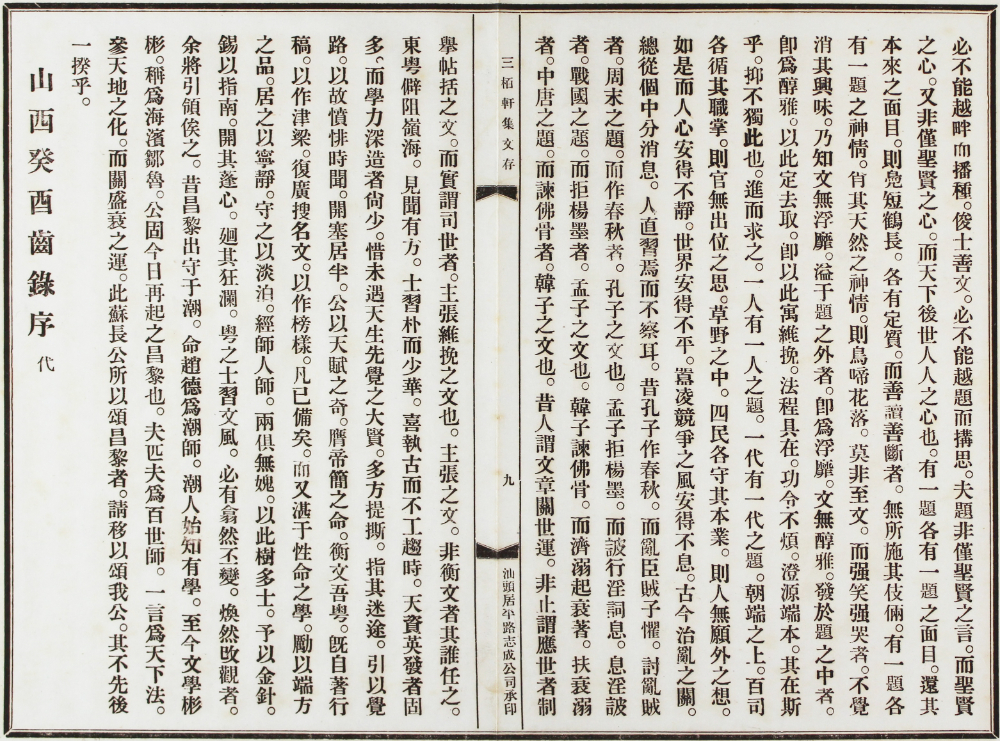 必不能越畔而播種。俊士善文。必不能越題而搆思。夫題非僅聖賢之言。而聖賢
之心。又非僅聖賢之心。而天下後世人人之心也。有一題各有一題之面目。還其
本來之面目。則鳧短鶴長。各有定質。而善讀善斷者。無所施其伎倆。有一題各
有一題之神情。肖其天然之神情。則鳥啼花落。莫非至文。而强笑强哭者。不覺
消其興味。乃知文無浮靡。溢于題之外者。卽爲浮靡。文無醇雅。發於題之中者。
卽爲醇雅。以此定去取。卽以此寓維挽。法程具在。功令不煩。澄源端本。其在斯
乎。抑不獨此也。進而求之。一人有一人之題。一代有一代之題。朝端之上。百司
各循其職掌。則官無出位之思。草野之中。四民各守其本業。則人無願外之想。
如是而人心安得不靜。世界安得不平。囂凌競爭之風安得不息。古今治亂之關。
總從個中分消息。人直習焉而不察耳。昔孔子作春秋。而亂臣賊子懼。討亂賊
者。周末之題。而作春秋者。孔子之文也。孟子拒楊墨。而詖行淫詞息。息淫詖
者。戰國之題。而拒楊墨者。孟子之文也。韓子諫佛骨。而濟溺起衰著。扶衰溺
者。中唐之題。而諫佛骨者。韓子之文也。昔人謂文章關世運。非止謂應世者制
三栢軒集文存
九
汕頭居平路志成公司承印
舉帖括之文。而實謂司世者。主張維挽之文也。主張之文。非衡文者其誰任之。
東粵僻阻嶺海。見聞有方。士習朴而少華。喜執古而不工趨時。天資英發者固
多。而學力深造者尙少。惜未遇天生先覺之大賢。多方提撕。指其迷途。引以覺
路。以故憤悱時聞。開塞居半。公以天賦之奇。膺帝簡之命。衡文吾粵。旣自著行
稿。以作津梁。復廣搜名文。以作榜樣。凡已備矣。而又湛于性命之學。勵以端方
之品。居之以寧靜。守之以淡泊。經師人師。兩俱無媿。以此樹多士。予以金針。
錫以指南。開其蓬心。廻其狂瀾。粵之士習文風。必有翕然丕變。煥然改觀者。
余將引領俟之。昔昌黎出守于潮。命趙德爲潮師。潮人始知有學。至今文學彬
彬。稱爲海濱鄒魯。公固今日再起之昌黎也。夫匹夫爲百世師。一言爲天下法。
參天地之化。而關盛衰之運。此蘇長公所以頌昌黎者。請移以頌我公。其不先後
一揆乎。
山西癸酉齒錄序 代